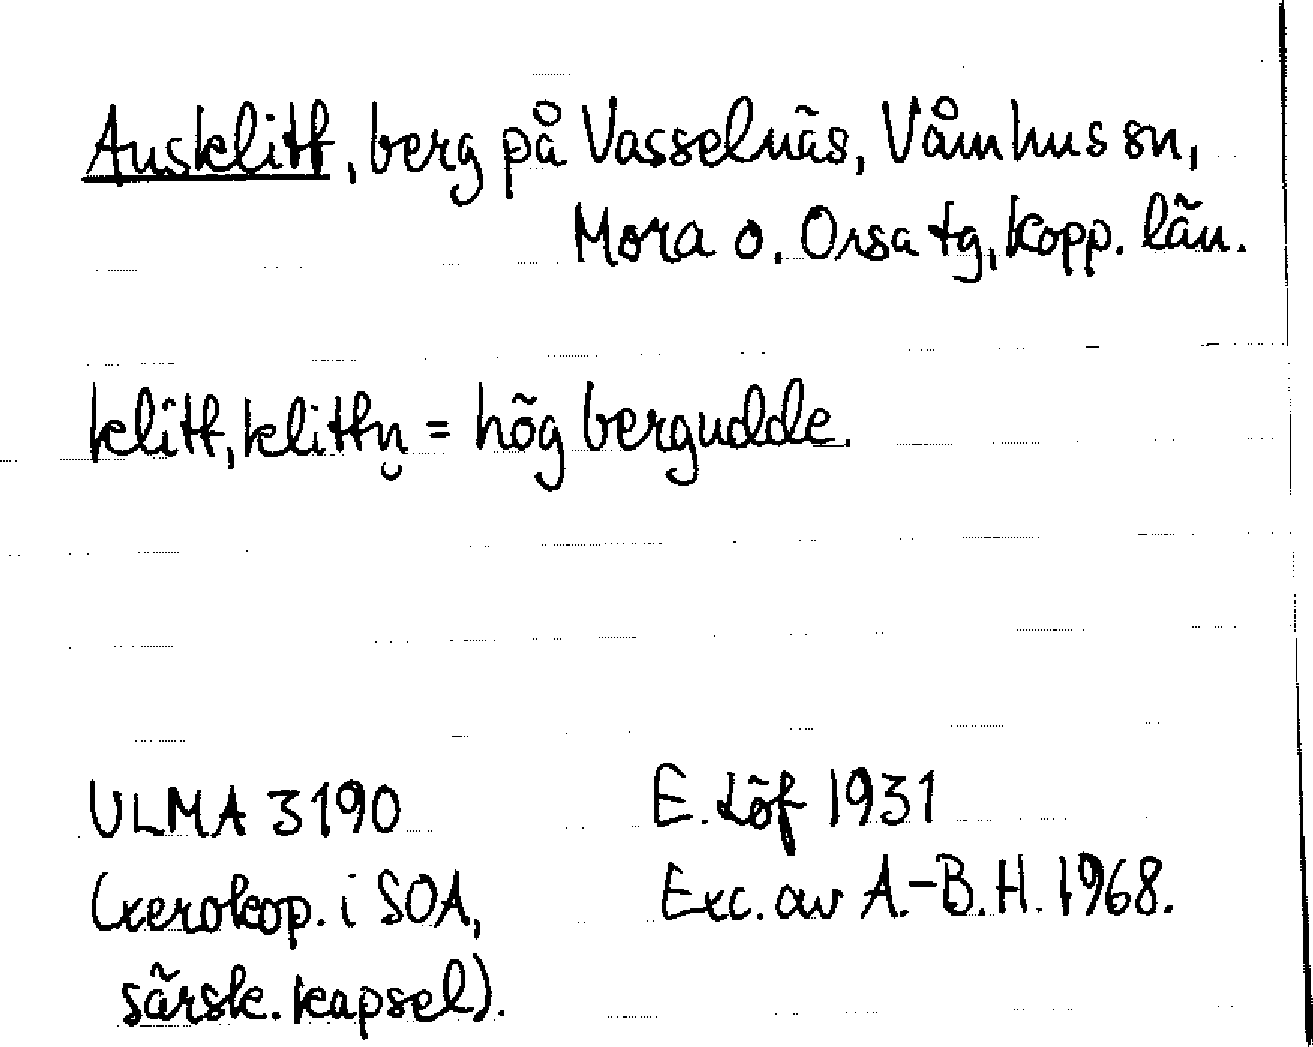 Ausklitt, berg på Vasselnäs, Våmhus sn,
Mora o. Orsa tg, Kopp. län.
klitt, klittn̯ = hög bergudde.
ULMA 3190
(xerokop. i SOA,
särsk. kapsel).
E. Löf 1931
Exc. av A.-B.H. 1968.